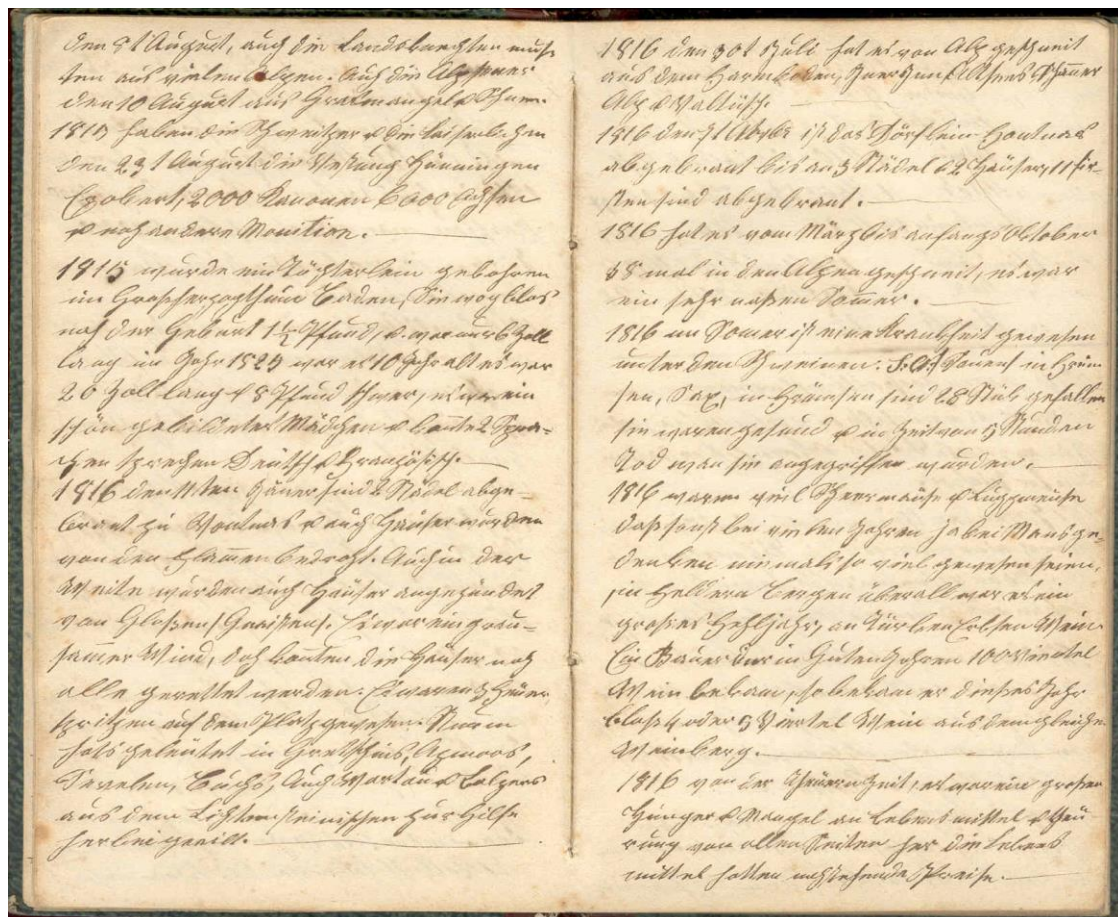 den 8t August, auch die Landsknechten muß
ten aus vielen Alpen. Auch die Alp
den 10 August aus
1815 haben die Schweitzer & die Kaiserlichen
den 23t August die Vestung Hünningen
Erobert, 2000 Kanonen 6000
& noch andere Monition.
1815 wurde ein Töchterlein gebohren
im Grosherzogthum Baden, Sie wog blos
nach der Geburt 1½ Pfund, & war nur 6 Zoll
lang im Jahr 1825 war es 10 Jahr alt es war
26 Zoll lang & 8 Pfund schwer, es war ein
schön gebildetes Mädchen & konte 2 Spra-
chen sprechen Deutsch & Französisch.
1816 den 11ten Jäner sind 2 Städel abge-
brant zu Fontnas & auch Häuser wurden
von den Flamen bedroht. Auch in der
Weite wurden auch Häuser angezündet
von Glossen (Gneisten). Es war ein grau-
samer Wind, doch konten die Häuser noch
alle gerettet werden. Es waren 5 Feuer
spritzen auf dem Platz gewesen. Sturm
hats geleutet in Gretschins, Azmoos,
Sevelen, Buchs, Auch Wartau & Balzers
aus dem Lichtensteinischen zur Hilfe
herbei geeilt.
1816 den 30t Juli hat es von Alp geschneit
aus dem
Alp & Valtüsch.
1816 den ist das Dörflein Fontnas
abgebrant bis an 3 Städel & 2 Häuser, 11 Fir-
sten sind abgebrant.
1816 hat es vom März bis anfangs Oktober
38 mal in den Alpen geschneit, es war
ein sehr naßen Somer.
1816 im Somer ist eine Krankheit gewesen
unter den Schweinen. in Grüm
sen, Sax, in Grümsen sind 28 Stük gefallen
sie waren gesund & in Zeit von 5 Stunden
Tod wan sie angegriffen wurden.
1816 waren viel Scheermäuse &
daß sonst bei vielen Jahren ja bei Mansge-
denken niemals so viel gewesen seien,
in Feldern Bergen überall war es ein
großes Fehljahr, an Türken Erbsen Wein
Ein Bauer der in Guten Jahren 100 Viertel
Wein bekam, so bekam er dießes Jahr
blos 4 oder 5 Viertel Wein aus dem gleichen
Weinberg.
1816 von der Theuern Zeit, es war ein großer
Hunger & Mangel an Lebensmittel & Theu
rung von allen Seiten her die Lebens
mittel hatten nachstehende Preise.